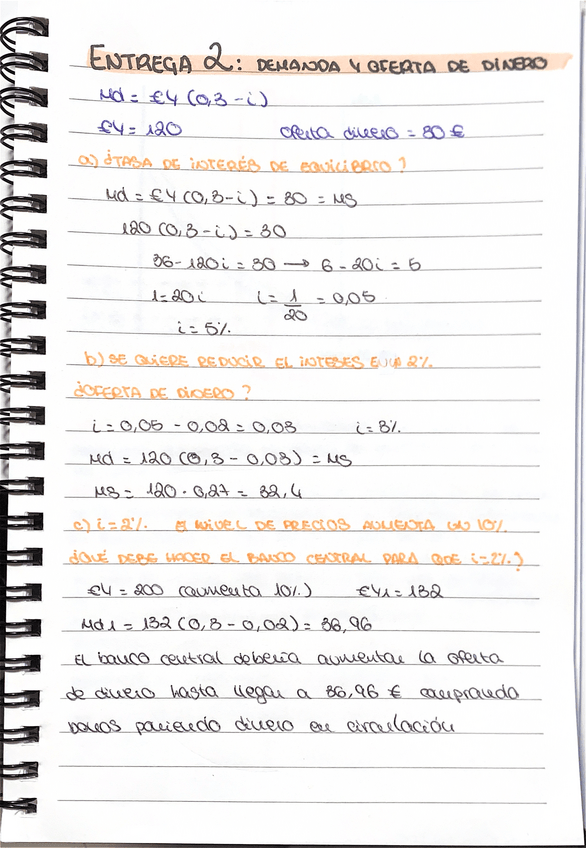 ENTREGA 2: DEMANDA Y OFERTA DE DINERO
Md = €Y (0,3 - i)
€Y = 120 oferta dinero = 30 €
a) ¿TASA DE INTERÉS DE EQUILIBRIO?
Md = €Y (0,3 - i) = 30 = MS
120 (0,3 - i) = 30
36 - 120i = 30 → 6 - 20i = 5
1 = 20i i = 1/20 = 0,05
i = 5%
b) SE QUIERE REDUCIR EL INTERES EN UN 2%.
¿OFERTA DE DINERO?
i = 0,05 - 0,02 = 0,03 i = 3%
Md = 120 (0,3 - 0,03) = MS
MS = 120 · 0,27 = 32,4
c) i = 2%. El NIVEL DE PRECIOS AUMENTA UN 10%
¿QUÉ DEBE HACER EL BANCO CENTRAL PARA QUE i = 2%?
€Y = 200 (aumenta 10%) €Y1 = 132
Md1 = 132 (0,3 - 0,02) = 36,96
El banco central debería aumentar la oferta
de dinero hasta llegar a 36,96 € comprando
bonos poniendo dinero en circulación